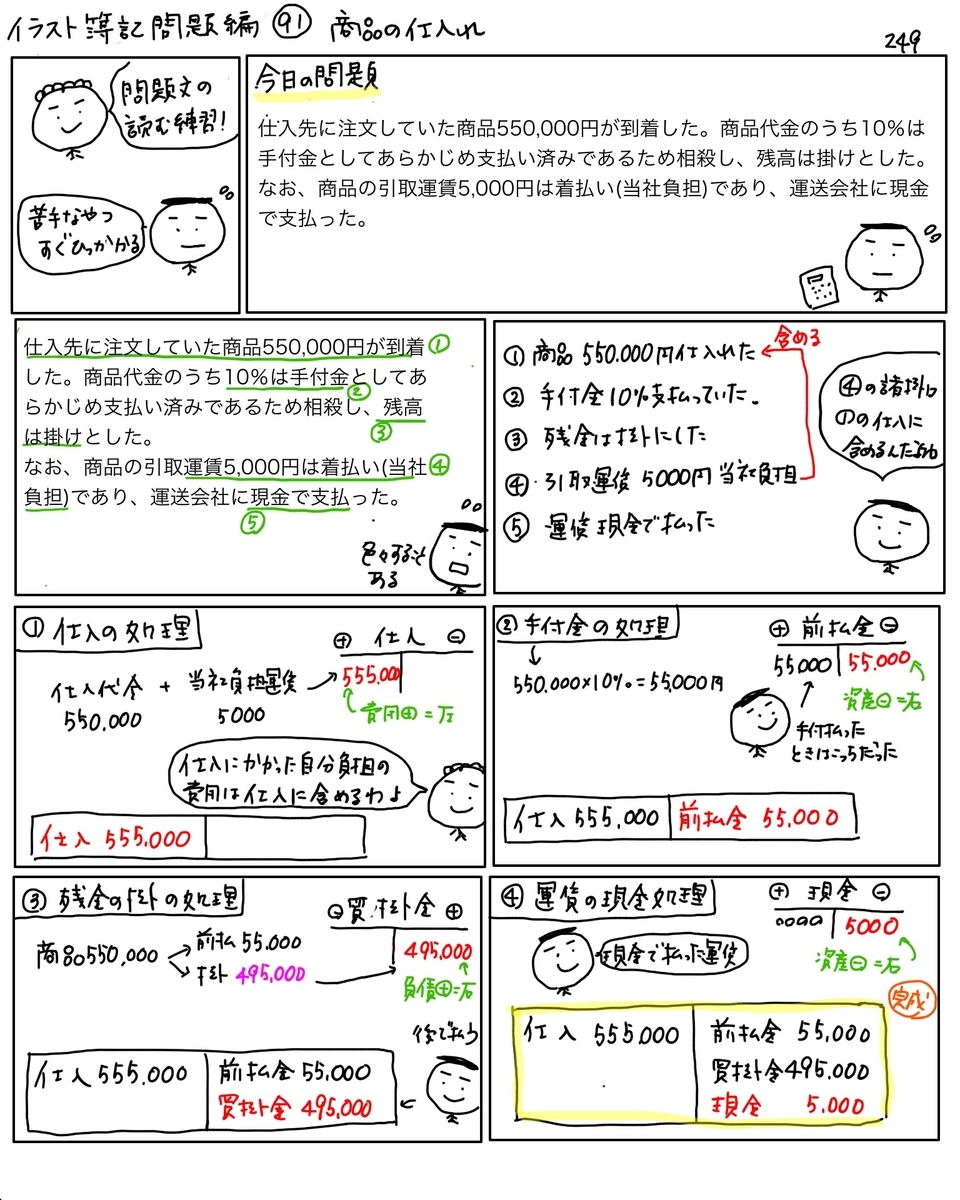 イラスト簿記問題編 91 商品の仕入れ
249
問題文の
読む練習!
苦手なやつ
すぐひっかかる
今日の問題
仕入先に注文していた商品550,000円が到着した。商品代金のうち10%は
手付金としてあらかじめ支払い済みであるため相殺し、残高は掛けとした。
なお、商品の引取運賃5,000円は着払い(当社負担)であり、運送会社に現金
で支払った。
仕入先に注文していた商品550,000円が到着 ①
した。商品代金のうち10%は手付金としてあ
②
らかじめ支払い済みであるため相殺し、残高
③
は掛けとした。
なお、商品の引取運賃5,000円は着払い(当社 ④
負担)であり、運送会社に現金で支払った。
⑤
色々すること
ある
含める
① 商品 550.000円仕入れた
② 手付金10%支払っていた。
③ 残金は掛けにした
④ 引取運賃 5000円 当社負担
⑤ 運賃現金で払った
④の諸掛は
①の仕入に
含めるんだよね
① 仕入の処理
⊕ 仕入 ⊖
555.000
仕入代金 + 当社負担運賃
550.000 5000
費用⊕=左
仕入にかかった自分負担の
費用は仕入に含めるわよ
仕入 555.000
② 手付金の処理
⊕ 前払金 ⊖
55.000 55.000
550.000×10%=55,000円
資産⊖=右
手付払った
ときはこっちだった
仕入 555,000 前払金 55,000
③ 残金の掛の処理
⊖ 買掛金 ⊕
495,000
商品550,000
前払 55.000
掛 495,000
負債⊕=右
後で払う
仕入 555.000 前払金 55,000
買掛金 495,000
④ 運賃の現金処理
⊕ 現金 ⊖
0000 5000
現金で払った運賃
資産⊖=右
完成
仕入 555.000 前払金 55,000
買掛金 495,000
現金 5.000